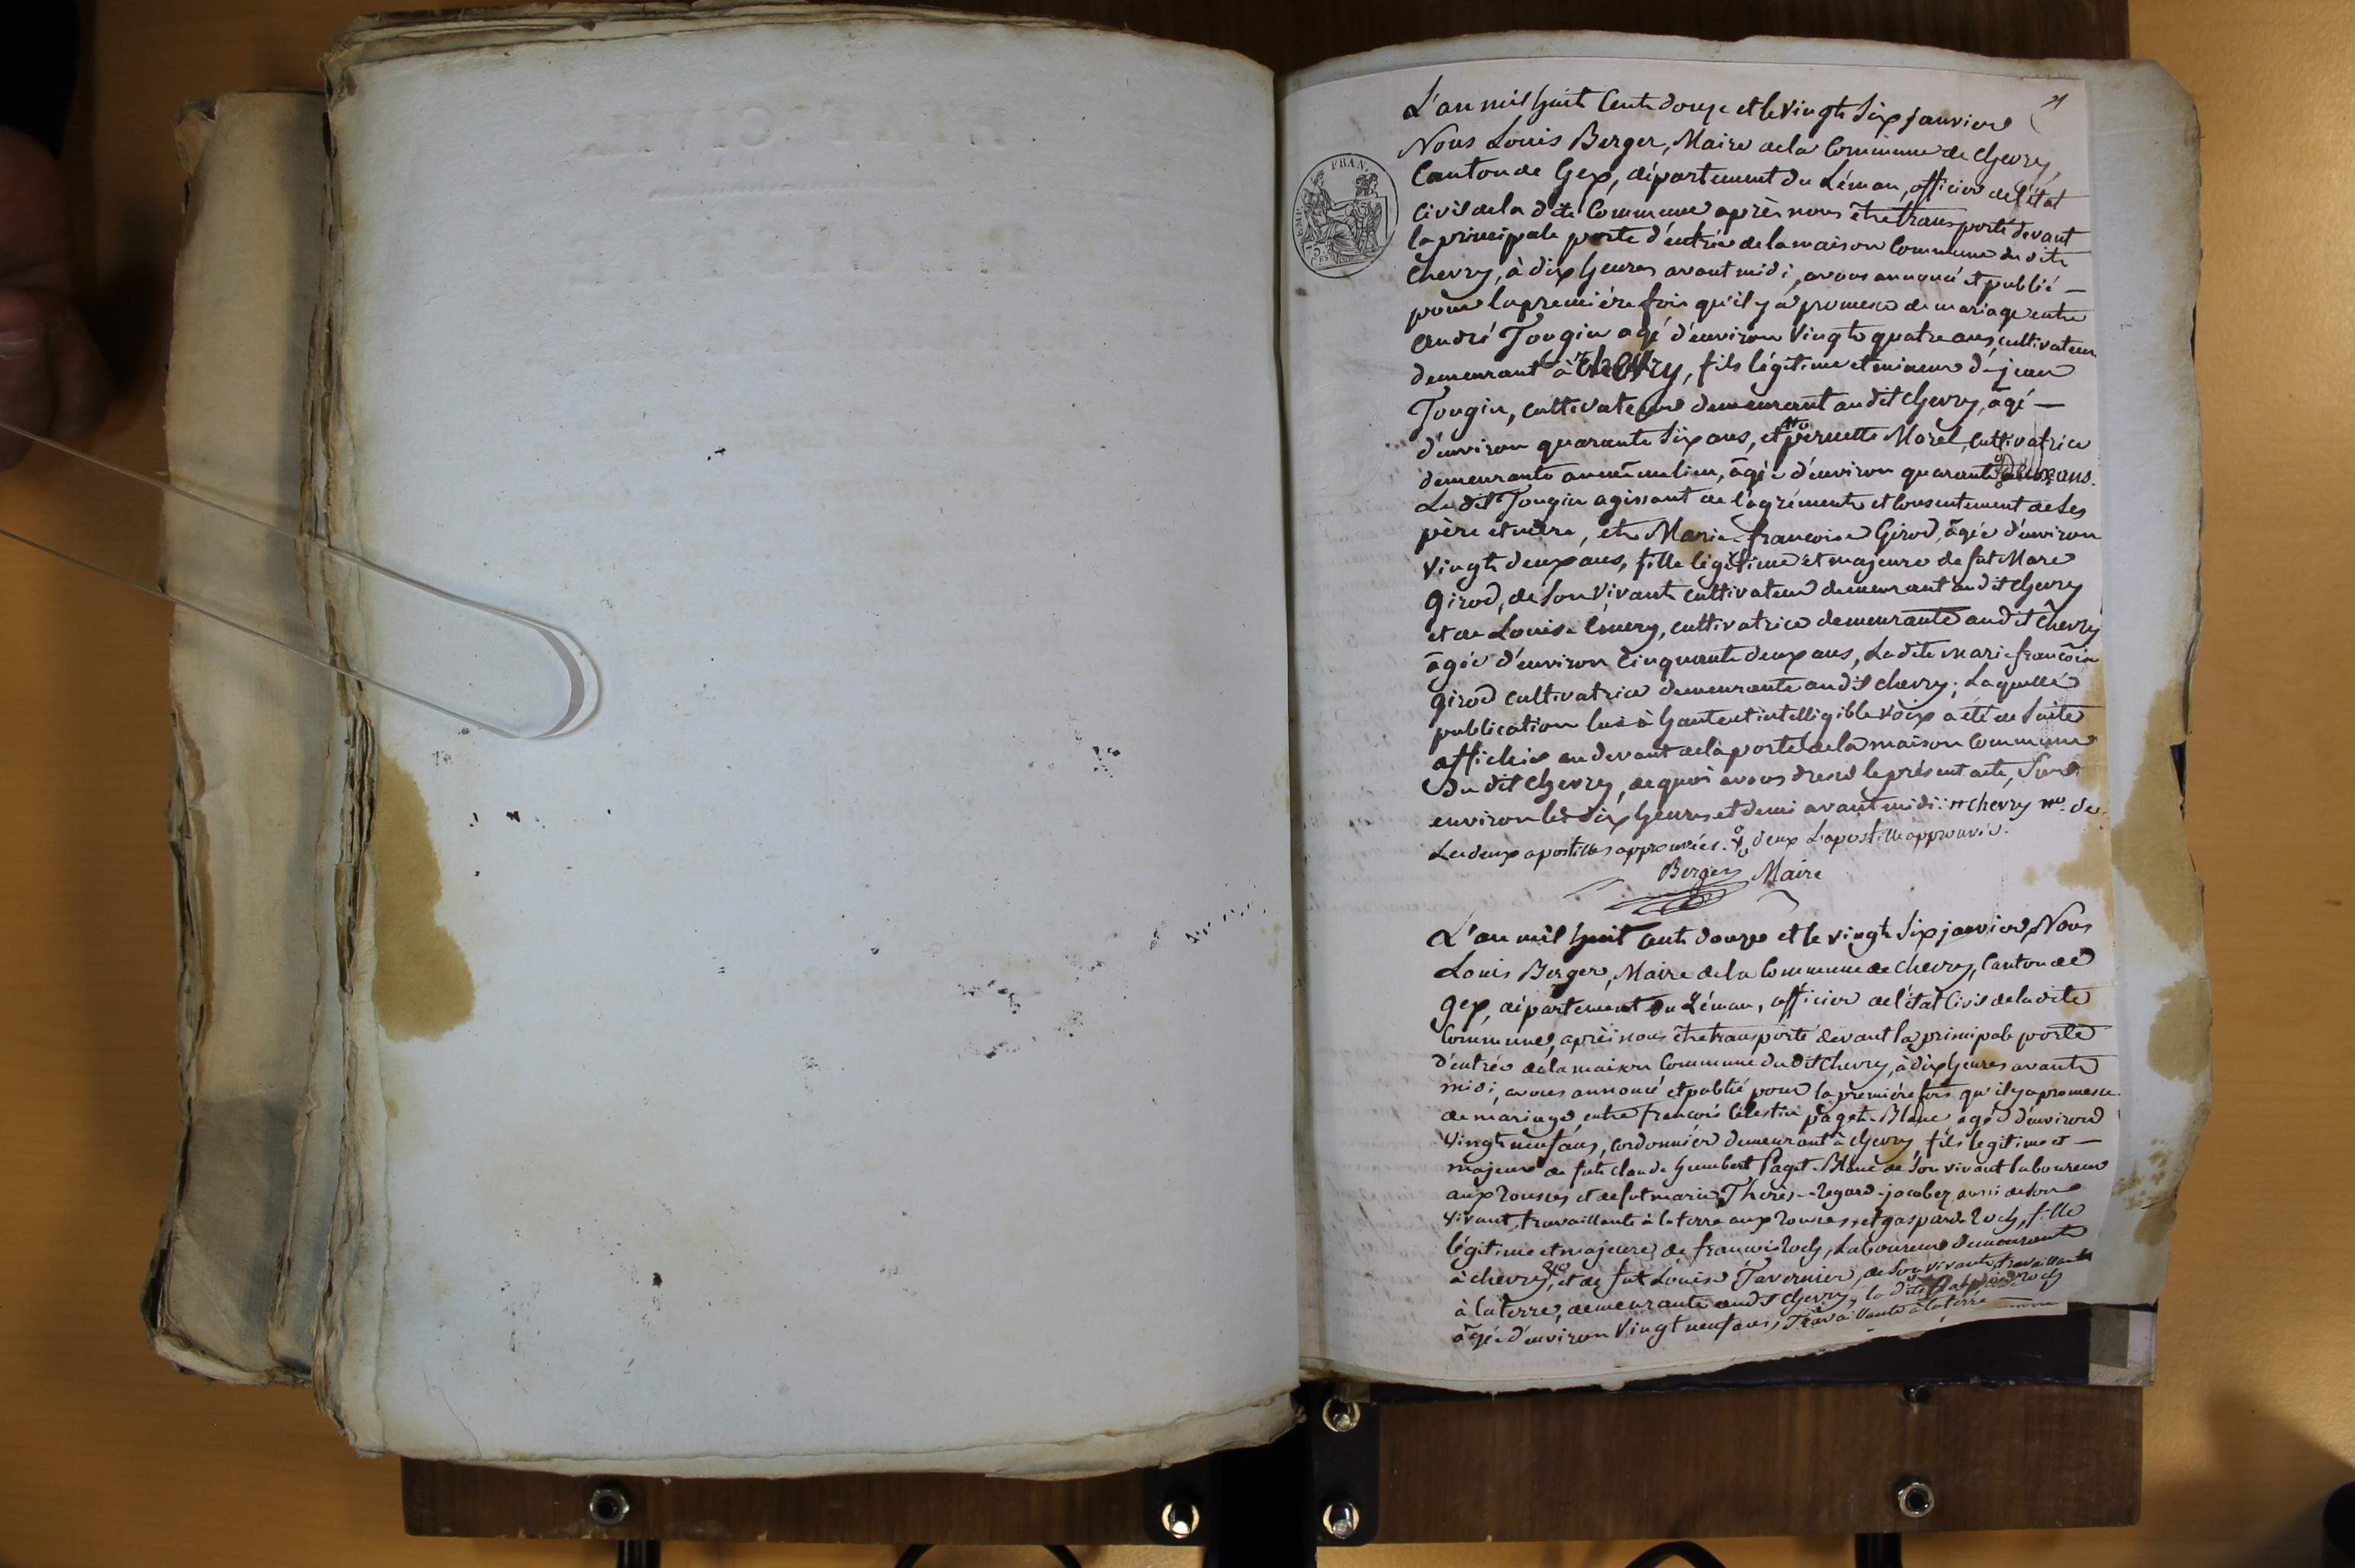 L'an mil huit Cent douze et le vingt Six janvier
Nous Louis Berger, Maire de la Commune de Chevry,
Canton de Gex, département du Léman, officier de l'état
Civil de la dite Commune après nous être transporté devant
la principale porte d'entrée de la maison Commune du dit
Chevry, à dix heures avant midi, avons annoncé et publié —
pour la première fois qu'il y a promesse de mariage entre
André Tougin agé d'environ Vingt quatre ans, cultivateur
demeurant à Chevry, fils légitime et mineur de jean
Tougin, cultivateur demeurant au dit Chevry, âgé —
d'environ quarante Six ans, et pernette Morel, Cultivatrice
demeurante au même lieu, âgée d'environ quarante deux ans.
Le dit Tougin agissant de l'agrément et Consentement de Ses
père et mère, et Marie françoise Girod, âgée d'environ
Vingt deux ans, fille légitime et majeure de fut Marc
Girod, de Son Vivant cultivateur demeurant au dit Chevry
et de Louise Emery, cultivatrice demeurante au dit Chevry
âgée d'environ Cinquante deux ans, La dite marie françoise
girod cultivatrice demeurante au dit Chevry; Laquelle
publication lue à haute et intelligible voix a été de Suite
affichée au devant de la porte de la maison Commune
Du dit Chevry, de quoi avons dressé le présent acte, Sur
environ les dix heures et demi avant midi: Chevry de
Les deux apostilles approuvées. deux L'apostille approuvée.
Berger Maire
FRAN.
L'an mil huit Cent douze et le vingt Six janvier, Nous
Louis Berger, Maire de la Commune de Chevry, Canton de
gex, département du Léman, officier de l'état Civil de la dite
Commune, après nous être transporté devant la principale porte
d'entrée de la maison Commune du dit Chevry, à dix heures avant
midi, avons annoncé et publié pour la première fois qu'il y a promesse
de mariage, entre francois Célestin paget-Blanc, agé d'environ
Vingt neuf ans, Cordonnier demeurant à Chevry, fils légitime et —
majeur de fut claude humbert Paget-Blanc de Son vivant laboureur
aux rousses et de fut marie Therèse Regard-jacobez aussi de Son
vivant, travaillante à la terre aux rousses, et gasparde roch, fille
légitime et majeure de francois roch, Laboureur demeurant
à chevry, et de fut Louise Tavernier, de Son Vivant, travaillante
à la terre, demeurante au dit Chevry, la dite roch
âgée d'environ Vingt neuf ans, Travaillante à la terre